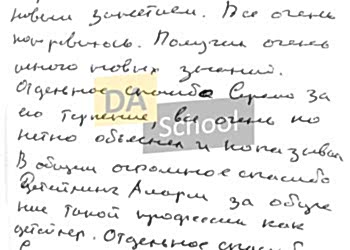 новым занятием. Все очень
понравилось. Получил очень
много новых знаний.
Отдельное спасибо Сергею за
его терпение, все очень по
нетно объяснял и показывал
В общем огромное спасибо
Детейлинг Алярм за обуче
ние такой профессии как
детейлер. Отдельное спасиб
DA
School